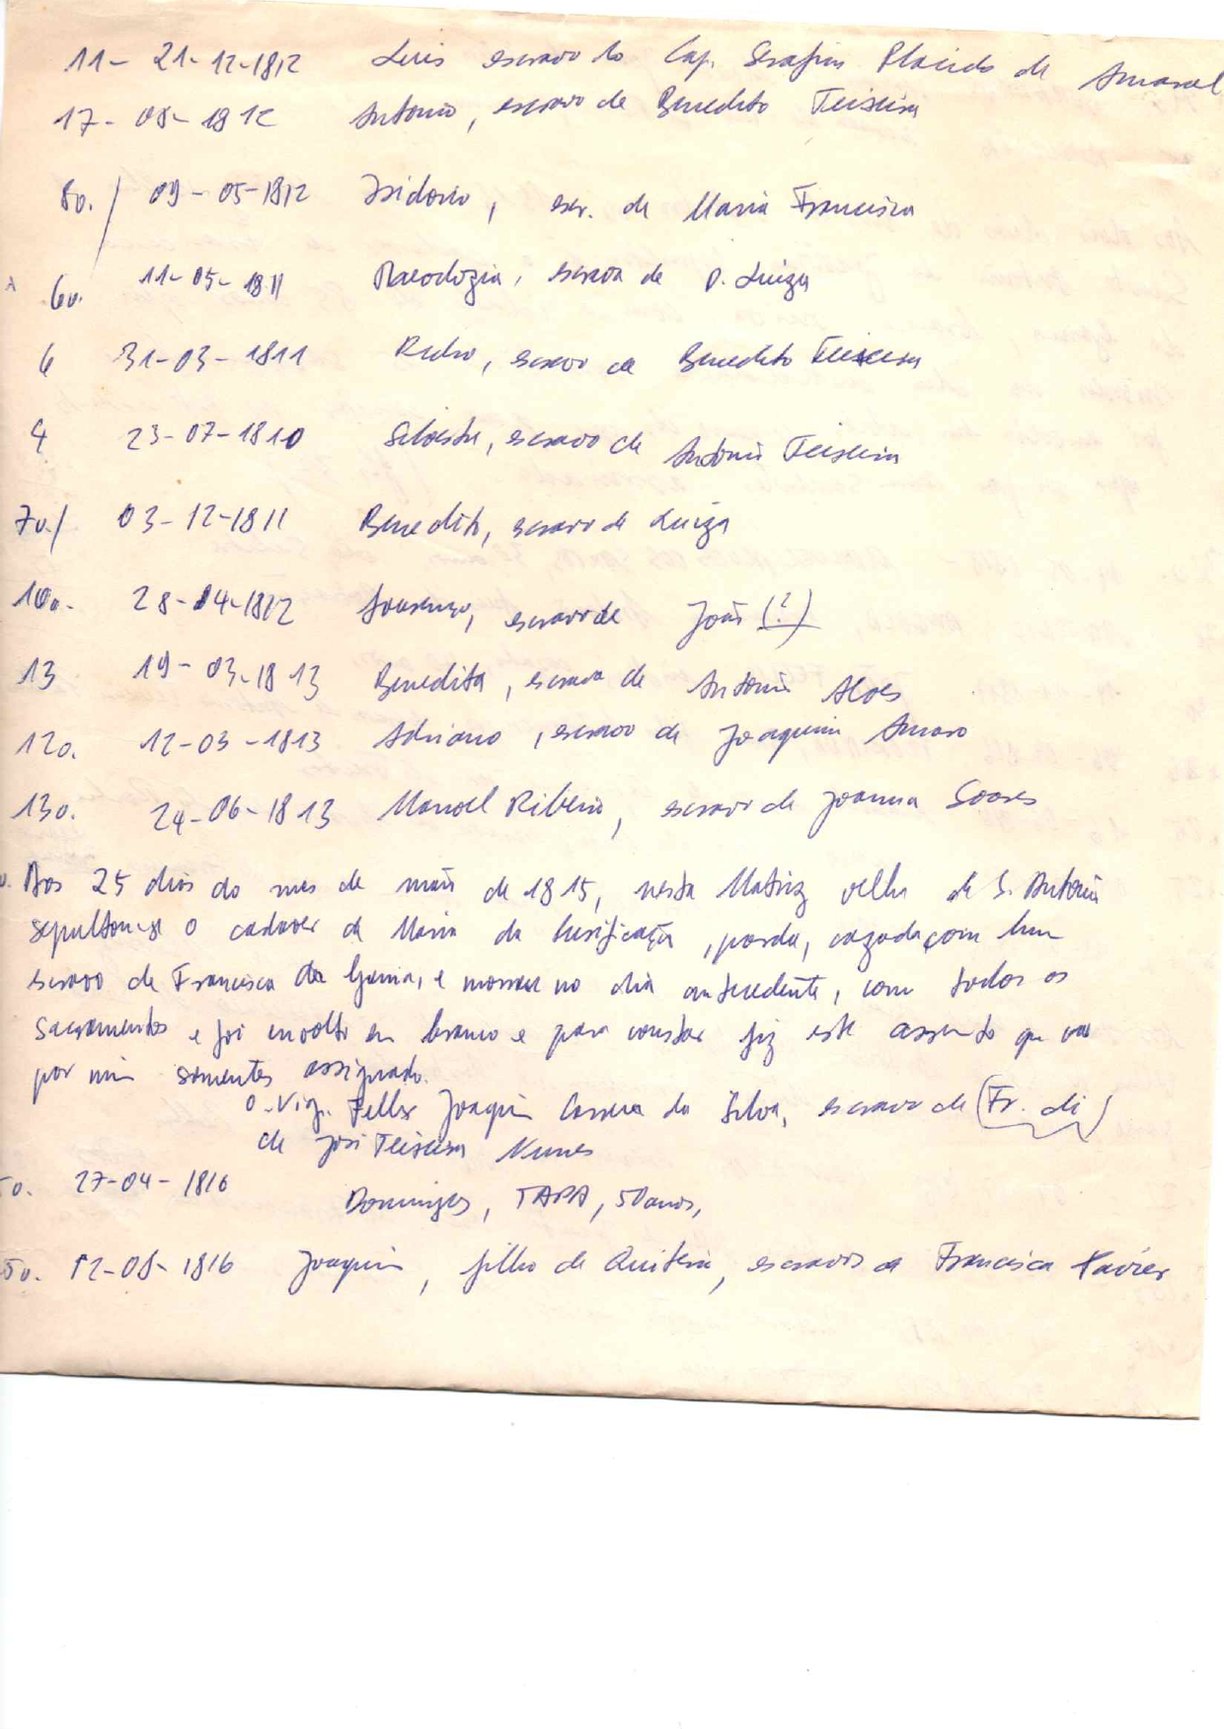 11- 21-12-1812 Luis escravo do Cap. Serafim Placido de Amaral
17- 08-1812 Antonio, escravo de Benedito Teixeira
8v./ 09-05-1812 Isidorio, escr. de Maria Francisca
6v. 11-05-1811 escrava de D. Luiza
6 31-03-1811 Pedro, escravo de Benedito Teixeira
4 23-07-1810 Silvestre, escravo de Antonio Teixeira
7v./ 03-12-1811 Benedito, escravo de Luiza
10v. 28-04-1812 Lourenço, escravo de João (?)
13 19-03-1813 Benedita, escrava de Antonio Alves
12v. 12-03-1813 Adriano, escravo de Joaquim Amaro
13v. 24-06-1813 Manoel Ribeiro, escravo de Joanna Soares
v. Aos 25 dias do mes de maio de 1815, nesta Matriz velha de S. Antonio
sepultou-se o cadaver de Maria da Purificação, parda, cazada com hum
escravo de Francisca da Gama, e morreu no dia antecedente, com todos os
sacramentos e foi involto em branco e para constar fiz este assento que vai
por mim somentes assignado.
o Vig. Fellix Joaquim Correia da Silva, escravo de (Fr. di)
de José Teixeira Nunes
5v. 27-04-1816 Domingos, TAPA, 50 anos,
5v. 12-08-1816 Joaquim, filho de Quiteria, escravos de Francisca Xavier